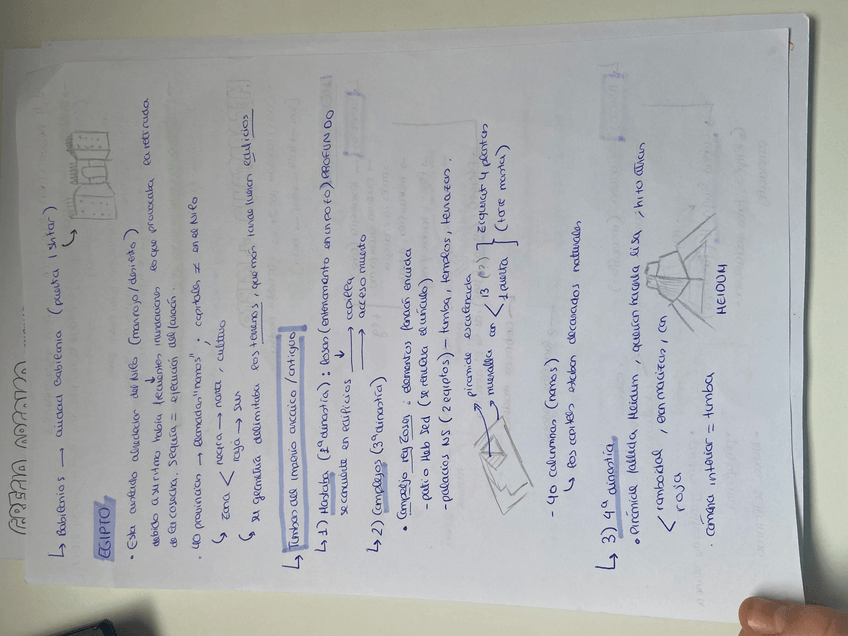 ↳ Babilonios → ciudad Babilonia (puerta Ishtar)
EGIPTO
• Esta cuidado alrededor del Nilo (mar rojo/desierto)
debido a su ritmo había frecuentes inundaciones lo que provocaba la retirada
de la cosecha. Sequía = ejecución del faraón.
• 40 provincias → llamadas "nomos"; capitales ≠ en el Nilo
↳ zona < negra → norte, cultivo
roja → sur
↳ su geometría delimitaba los terrenos, que más tarde fueron edificios
↳ Tumbas del imperio arcaico / antiguo
↳ 1) Mastaba (1ª dinastía): fosas (enterramiento en un pozo) PROFUNDO
se convierte en edificios → capilla
→ acceso muerto
↳ 2) Complejos (3ª dinastía)
• Complejo rey Zoser: elementos función
- patio Heb Sed
- palacios NS (2 egiptos) - tumba, templos, terrazas.
→ pirámide escalonada
→ muralla con < 13
1 puerta
} ziqurat 4 plantas
(torre
- 40 columnas (nomos)
↳ los capiteles estaban decorados naturales
↳ 3) 4ª dinastía
• Pirámide fallida Meidum, querían hacerla lisa,
< romboidal,
roja
• cámara interior = tumba
MEIDUM